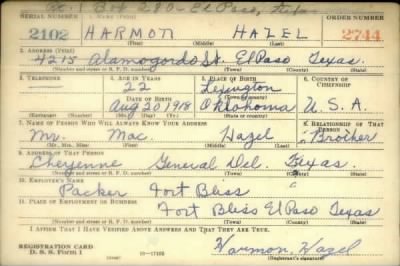 Rt. 1 Box 280 - El Paso, Tex.
SERIAL NUMBER 1. NAME (Print) ORDER NUMBER
2102 HARMON HAZEL 2744
(First) (Middle) (Last)
2. ADDRESS (Print)
4215 Alamogordo St. El Paso Texas.
(Number and street or R. F. D. number) (Town) (County) (State)
3. TELEPHONE 4. AGE IN YEARS 5. PLACE OF BIRTH 6. COUNTRY OF CITIZENSHIP
22 Lexington
DATE OF BIRTH (Town or county)
Aug 20 1918 Oklahoma U. S. A.
(Exchange) (Number) (Mo.) (Day) (Yr.) (State or country)
7. NAME OF PERSON WHO WILL ALWAYS KNOW YOUR ADDRESS 8. RELATIONSHIP OF THAT PERSON
Mr. Mac. Hazel Brother
(Mr., Mrs., Miss) (First) (Middle) (Last)
9. ADDRESS OF THAT PERSON
Cheyenne General Del. Texas.
(Number and street or R. F. D. number) (Town) (County) (State)
10. EMPLOYER'S NAME
Packer Fort Bliss
11. PLACE OF EMPLOYMENT OR BUSINESS
Fort Bliss El Paso Texas
(Number and street or R. F. D. number) (Town) (County) (State)
I AFFIRM THAT I HAVE VERIFIED ABOVE ANSWERS AND THAT THEY ARE TRUE.
REGISTRATION CARD
D. S. S. Form 1 16—17105 Harmon Hazel
(Registrant's signature)